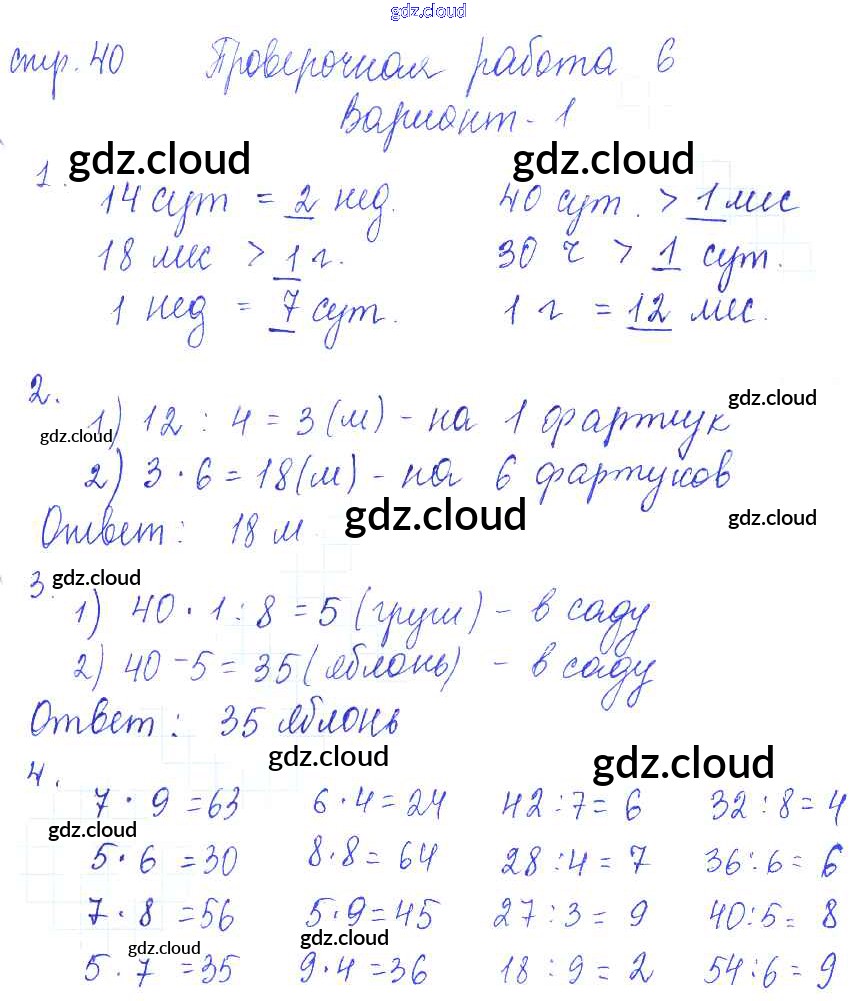 gdz.cloud
стр. 40 Проверочная работа 6
Вариант - 1
gdz.cloud gdz.cloud
1.
14 сут = 2 нед. 40 сут. > 1 мес
18 мес > 1 г. 30 ч > 1 сут.
1 нед = 7 сут. 1 г = 12 мес.
2.
gdz.cloud
1) 12 : 4 = 3 (м) - на 1 фартук
gdz.cloud
2) 3 · 6 = 18 (м) - на 6 фартуков
gdz.cloud gdz.cloud
Ответ: 18 м
3. gdz.cloud
1) 40 · 1 : 8 = 5 (груш) - в саду
2) 40 - 5 = 35 (яблонь) - в саду
Ответ: 35 яблонь
gdz.cloud gdz.cloud
4.
7 · 9 = 63 6 · 4 = 24 42 : 7 = 6 32 : 8 = 4
gdz.cloud
5 · 6 = 30 8 · 8 = 64 28 : 4 = 7 36 : 6 = 6
7 · 8 = 56 5 · 9 = 45 27 : 3 = 9 40 : 5 = 8
gdz.cloud gdz.cloud
5 . 7 = 35 9 · 4 = 36 18 : 9 = 2 54 : 6 = 9